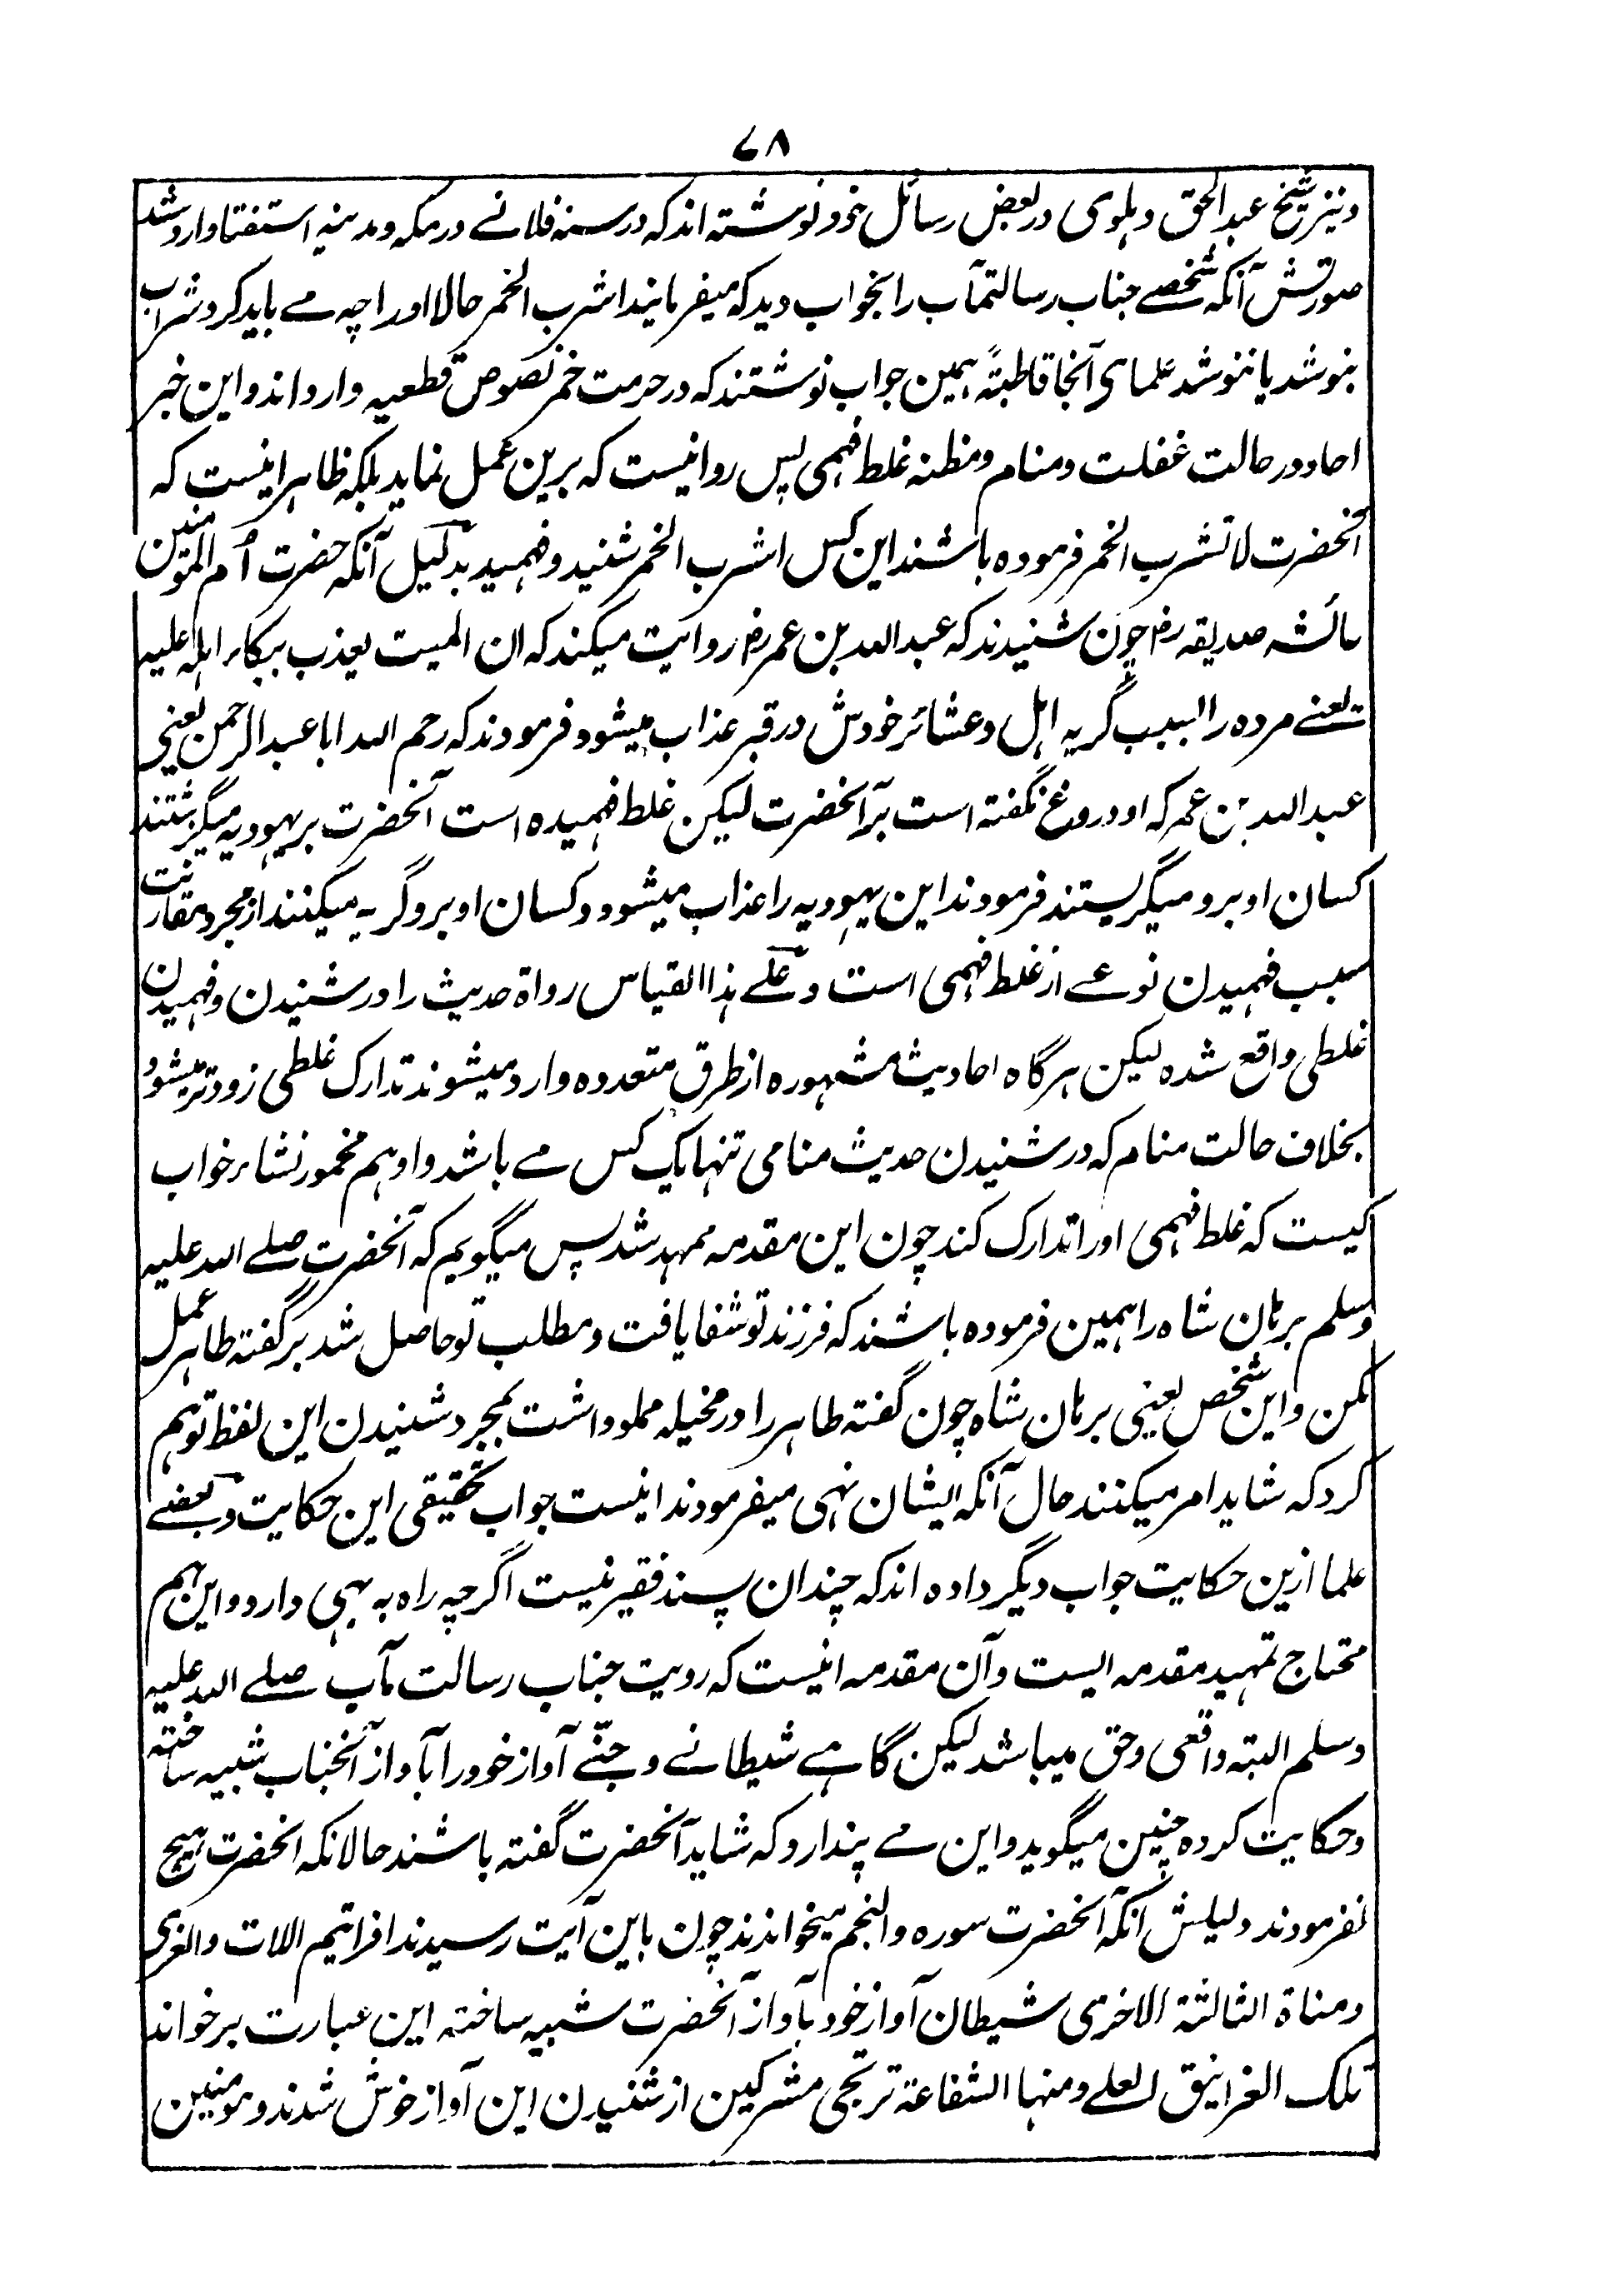 ٧٨
ونیز شیخ عبدالحق دہلوی در بعض رسائل خود نوشته اند که در سنه فلانے در مکه و مدینه استفتا وارد شد
صورتش آنکه شخصے جناب رسالتمآب را بخواب دید که میفرمایند اشرب الخمر حالا اورا چه مے باید کرد شراب
بنوشد یا ننوشد علمای آنجا قاطبتهً ہمین جواب نوشتند که در حرمت خمر نصوص قطعیه وارد اند و این خبر
احاد در حالت غفلت و منام و مظنه غلط فہمی پس روا نیست که برین عمل نماید بلکه ظاہر اینست که
آنحضرت لا تشرب الخمر فرموده باشند این کس اشرب الخمر شنید و فہمید بدلیل آنکه حضرت اُم المومنین
عائشه صدیقه رض چون شنیدند که عبد الله بن عمر رض روایت میکند که ان المیت یعذب ببکاء اہله علیه
یعنے مرده را بسبب گریه اہل و عشائر خودش در قبر عذاب میشود فرمودند که رحم الله ابا عبد الرحمن یعنی
عبد الله بن عمر که او دروغ نگفته است بر آنحضرت لیکن غلط فہمیده است آنحضرت بر یہودیه میگزشتند
کسان او برو میگریستند فرمودند این یہودیه را عذاب میشود و کسان او برو گریه میکنند از مجرد مقارنت
سبب فہمیدن نوعے از غلط فہمی است و علے ہذا القیاس رواة حدیث را در شنیدن و فہمیدن
غلطی واقع شده لیکن ہرگاه احادیث مشہوره از طرق متعدده وارد میشوند تدارک غلطی زود تر میشود
بخلاف حالت منام که در شنیدن حدیث منامی تنہا یک کس مے باشد و او ہم مخمور نشاء خواب
کیست که غلط فہمی اورا تدارک کند چون این مقدمه ممہد شد پس میگویم که آنحضرت صلے الله علیه
وسلم برہان شاه را ہمین فرموده باشند که فرزند تو شفا یافت و مطلب تو حاصل شد بر گفته طاہر عمل
مکن و این شخص یعنی برہان شاه چون گفته طاہر را در مخیله مملو داشت بمجرد شنیدن این لفظ توہم
کرد که شاید امر میکنند حال آنکه ایشان نہی میفرمودند اینست جواب تحقیقی این حکایت و بعضے
علما ازین حکایت جواب دیگر داده اند که چندان پسند فقیر نیست اگرچه راه به بہی دارد و این ہم
محتاج تمہید مقدمه ایست و آن مقدمه اینست که رویت جناب رسالت مآب صلے الله علیه
وسلم البته واقعی و حق میباشد لیکن گاہے شیطانے و جنّے آواز خود را بآواز آنجناب شبیه ساخته
و حکایت کرده چنین میگوید و این مے پندارد که شاید آنحضرت گفته باشند حالانکه آنحضرت ہیچ
نفرمودند دلیلش آنکه آنحضرت سوره والنجم میخواندند چون باین آیت رسیدند افرأیتم اللات والعزی
ومناة الثالثة الاخری شیطان آواز خود بآواز آنحضرت شبیه ساخته این عبارت بر خواند
تلک الغرانیق العلے ومنہا الشفاعة ترتجی مشرکین از شنیدن این آواز خوش شدند و مومنین